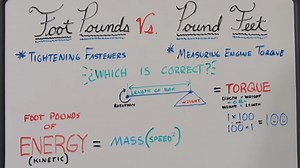 Foot Pounds Vs. Pound Feet
* Tightening Fasteners
* Measuring Engine Torque
¿Which is Correct?
Length of Bar
Rotation
Weight
= Torque
Length x Weight
-OR-
Weight x Length
1 x 100
100 x 1 = 100
Foot Pounds
of
Energy = Mass (Speed²)
(Kinetic)